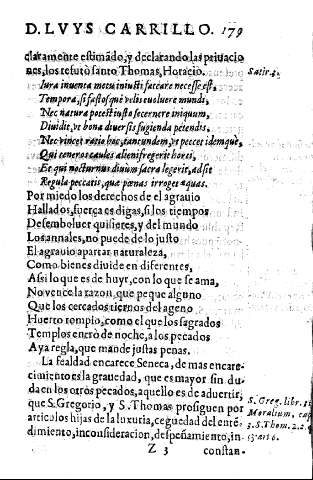 D. LVYS CARRILLO. 179
claramente estimãdo, y declarando las priuacio
nes, los refutò santo Thomas, Horacio. Satir. 4.
Iura inuenta metu iniusti fateare necesse est,
Tempora, si fastosq; velis euoluere mundi,
Nec natura potest iusto secernere iniquum,
Diuidit, vt bona diuersis fugienda petendis,
Nec vincet ratio hoc, tantundem, vt peccet idemquè,
Qui teneros caules alieni fregerit horti,
Et qui nocturnus diuũm sacra legerit, adsit
Regula peccatis, quæ pœnas irroget æquas.
Por miedo los derechos de el agrauio
Hallados, fuerça es digas, si los tiempos
Desemboluer quisieres, y del mundo
Los annales, no puede de lo justo
El agrauio apartar naturaleza,
Como bienes diuide en diferentes,
Assi lo que es de huyr, con lo que se ama,
No vence la razon, que peque alguno
Que los cercados tiernos del ageno
Huerto rompio, como el que los sagrados
Templos entrò de noche, a los pecados
Aya regla, que mande justas penas.
La fealdad encarece Seneca, de mas encare-
cimiento es la grauedad, que es mayor sin du-
da en los otros pecados, aquello es de aduertir,
que S. Gregorio, y S. Thomas prosiguen por
articolos hijas de la luxuria, ceguedad del entẽ-
dimiento, inconsideracion, despeñamiento, in-
S. Greg. libr. 31
Moralium, cap
3. S. Thom. 2. 2. q.
153 art 6.
Z 3 constan-